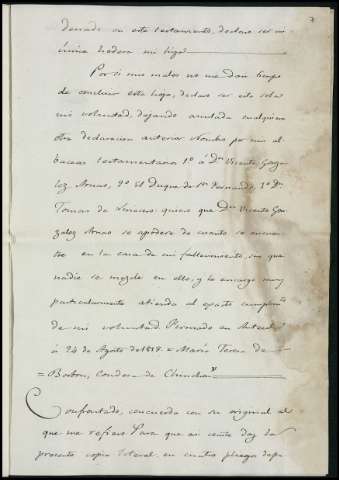 7
derado en este testamento, declaro ser mi
única hedera mi hija
Por si mis males no me dan tiempo
de concluir esta hoja, declaro ser esta sola
mi voluntad, dejando anulada cualquiera
otra declaracion anterior Nombro por mis al
baceas testamentarios 1º á Dn Vicente Gonza
lez Arnao, 2º El Duque de Sn Fernando, 3º Dn
Tomas de quiero que Dn Vicente Gon
zalez Arnao se apodere de cuanto se encuen
tre en la casa de mi fallecimiento, sin que
nadie se mezcle en ello, y le encargo muy
particularmente atienda al exacto cumplimto
de mi voluntad Firmado en Auteuil
á 24 de Agosto de = Maria Teresa de
= Borbon, Condesa de Chinchon
Confrontado, concuerda con su original al
que me refiero Para que asi conste doy la
presente copia literal en cuatro pliegos de